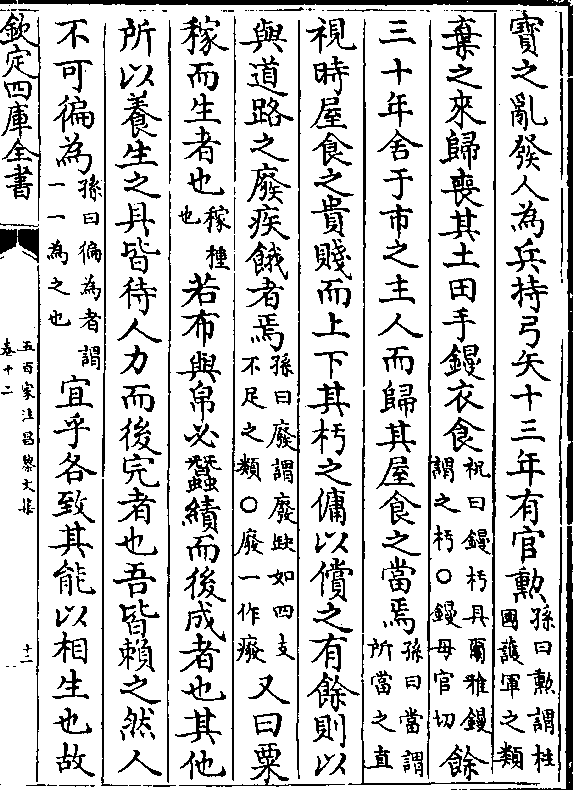 寶之亂發人為兵持弓矢十三年有官勲孫曰勲謂柱國護軍之類
棄之來歸喪其土田手鏝衣食祝曰鏝杇具爾雅鏝謂之杇○鏝母官切餘
三十年舍于市之主人而歸其屋食之當焉孫曰當謂所當之直
視時屋食之貴賤而上下其杇之傭以償之有餘則以
與道路之廢疾餓者焉孫曰廢謂廢缺如四支不足之類○廢一作癈又曰粟
稼而生者也稼種也若布與帛必蠶績而後成者也其他
所以養生之具皆待人力而後完者也吾皆賴之然人
不可徧為孫曰徧為者謂一一為之也宜乎各致其能以相生也故
欽定四庫全書
五百家注昌黎文集
卷十二
十二